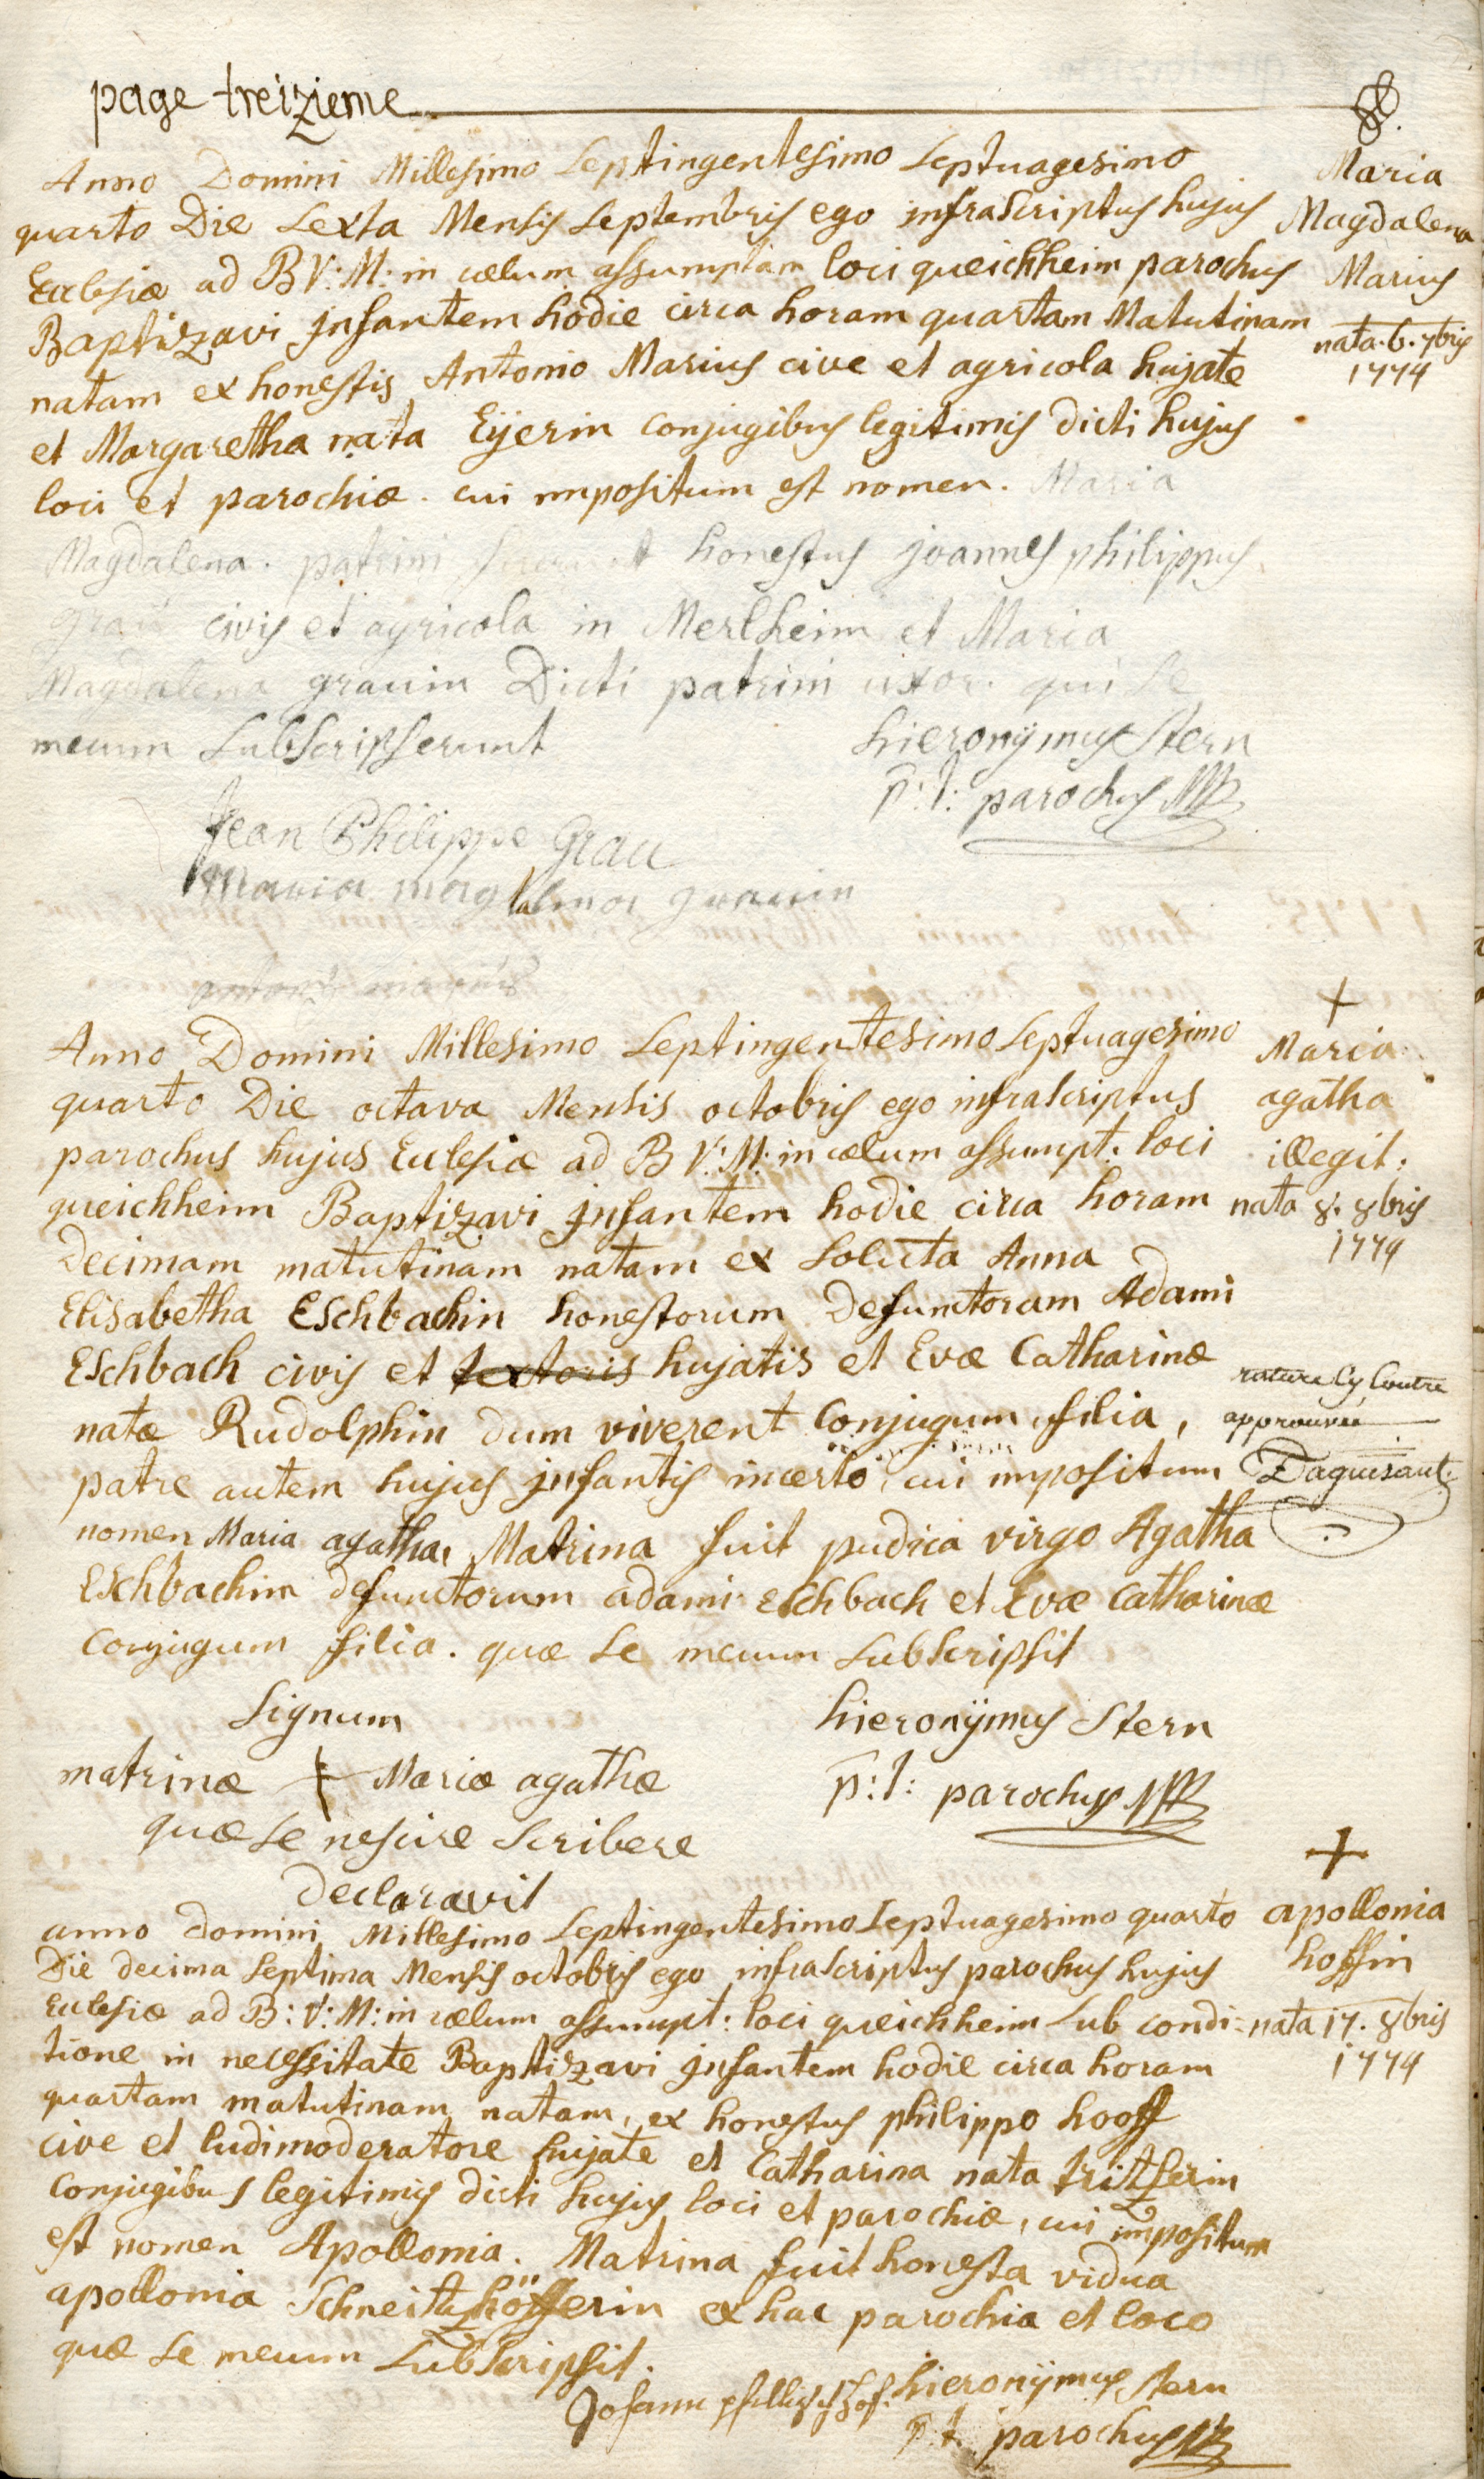 page treizieme
Anno Domini Millesimo Septingentesimo Septuagesimo
quarto Die Sexta Mensis Septembris ego infrascriptus hujus
Ecclesiæ ad B V: M: in cælum assumptam loci queichheim parochus
Baptizavi jnfantem hodie circa horam quartam Matutinam
natam ex honestis Antonio Marius cive et agricola hujate
et Margaretha nata Eÿerin conjugibus legitimis dicti hujus
loci et parochiæ. cui impositum est nomen. Maria
Magdalena. patrini fuerunt honestus joannes philippus
grau civis et agricola in Merlheim et Maria
Magdalena grauin Dicti patrini uxor. qui se
mecum subscripserunt
hieronÿmus Stern
p: t: parochus
Jean Philippe Grau
Maria magdalena grauin
antoni marius
Maria
Magdalena
Marius
nata. 6. 7bris
1774
Anno Domini Millesimo Septingentesimo Septuagesimo
quarto Die octava Mensis octobris ego infrascriptus
parochus hujus Ecclesiæ ad B V: M: in cælum assumpt: loci
queichheim Baptizavi jnfantem hodie circa horam
Decimam matutinam natam ex soluta Anna
Elisabetha Eschbachin honestorum Defunctorum Adami
Eschbach civis et textoris hujatis et Evæ Catharinæ
natæ Rudolphin dum viverent Conjugum filia,
patre autem hujus jnfantis incerto, cui impositum
nomen Maria agatha, Matrina fuit pudica virgo Agatha
Eschbachin defunctorum adami Eschbach et Evæ Catharinæ
Conjugum filia. quæ se mecum subscripsit
Signum
matrinæ + Mariæ agathæ
quæ se nescire scribere
declaravit
hieronÿmus Stern
p: t: parochus
+
Maria
agatha
illegit:
nata 8. 8bris
1774
rature cy contre
approuvée
Daguisant
anno domini Millesimo Septingentesimo Septuagesimo quarto
Die decima septima Mensis octobris ego infrascriptus parochus hujus
Ecclesiæ ad B: V: M: in cælum assumpt: loci queichheim sub condi-
tione in necessitate Baptizavi jnfantem hodie circa horam
quartam matutinam natam, ex honestus philippo hooff
cive et ludimoderatore hujate et Catharina nata tritzserin
Conjugibus legitimis dicti hujus loci et parochiæ, cui impositum
est nomen Apollonia. Matrina fuit honesta vidua
apollonia Schneitzhöfferin ex hac parochia et loco
quæ se mecum subscripsit.
hieronÿmus Stern
p: t. parochus
+
apollonia
hoffin
nata 17. 8bris
1774